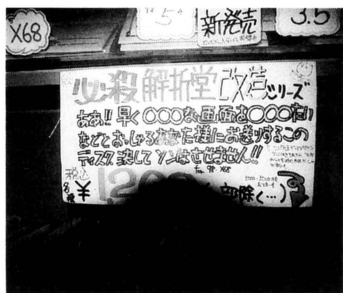 X68
5"
新発売
3.5
必殺 解析堂 改造シリーズ
ああ!! 早く〇〇〇な画面を〇〇〇たい
などとおっしゃるあなた様にお送りするこの
ディスク 決して ソンはさせません!!
for 98 X68
税込
¥1,20
部除く…)